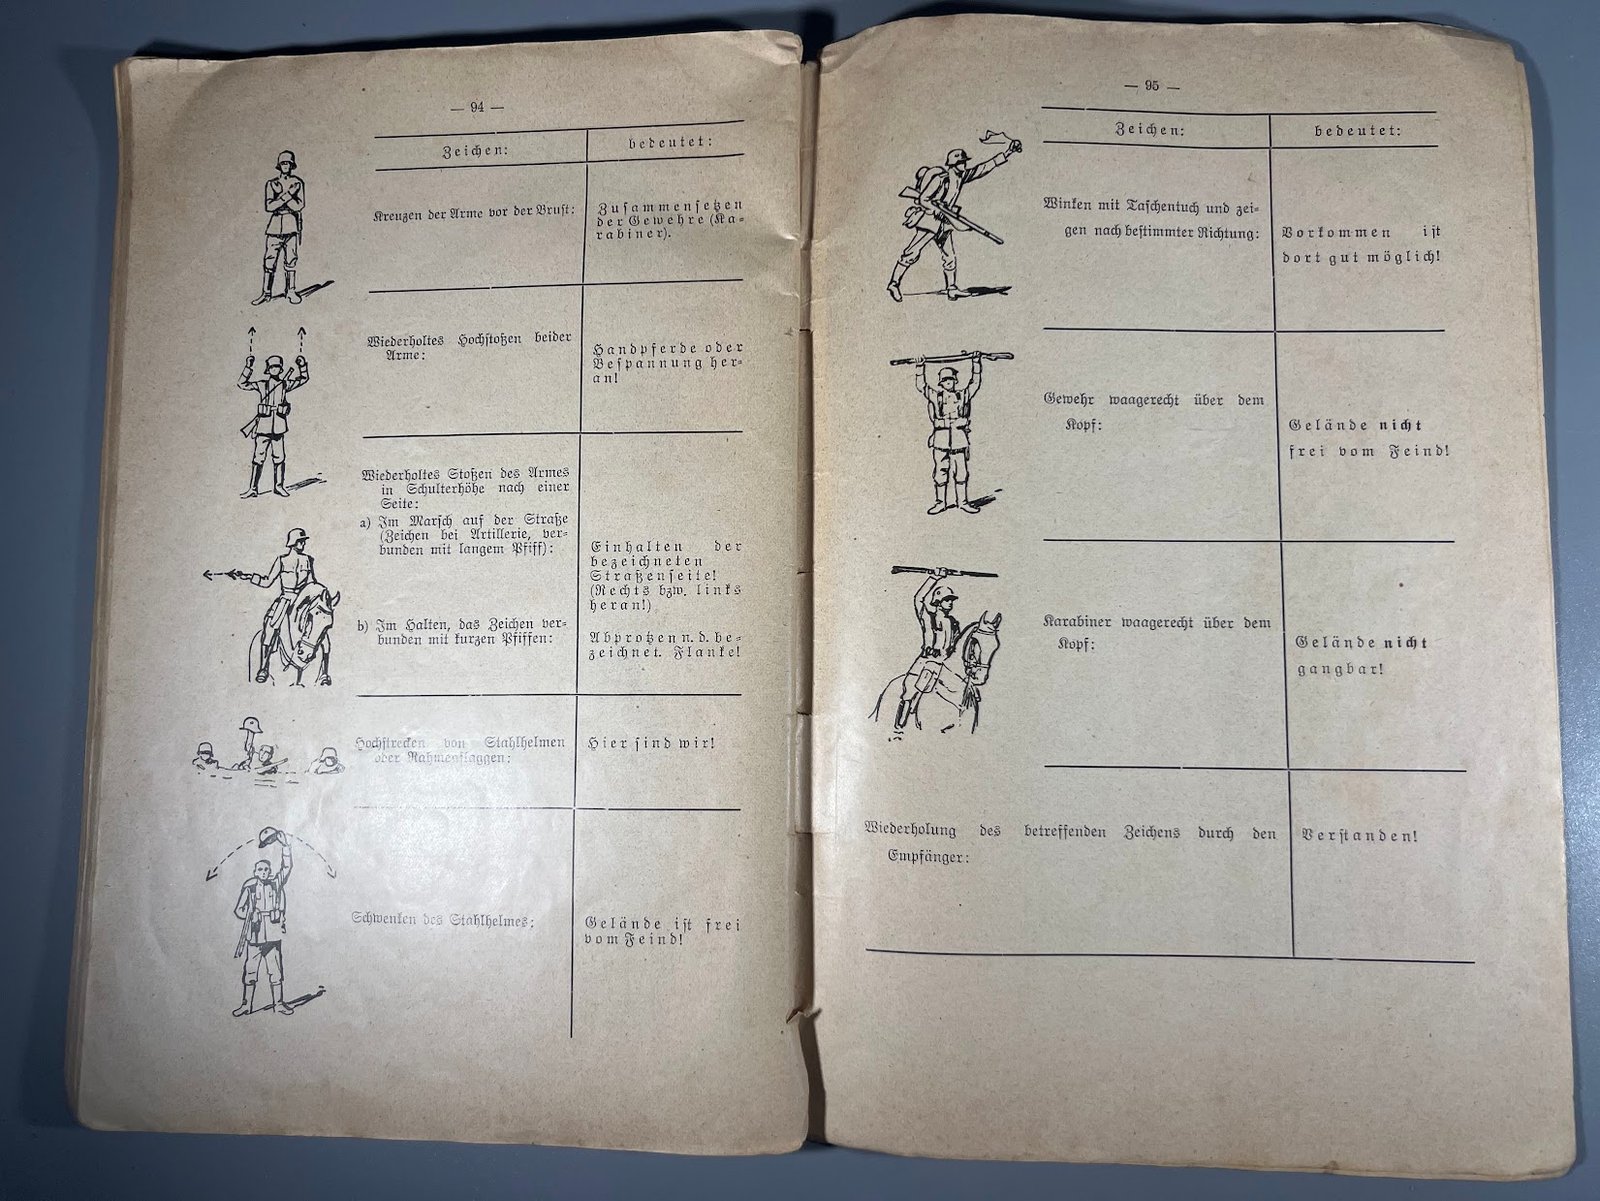 — 94 —
Zeichen:
bedeutet:
Kreuzen der Arme vor der Brust:
Zusammensetzen
der Gewehre (Ka-
rabiner).
Wiederholtes Hochstoßen beider
Arme:
Handpferde oder
Bespannung her-
an!
Wiederholtes Stoßen des Armes
in Schulterhöhe nach einer
Seite:
a) Im Marsch auf der Straße
(Zeichen bei Artillerie, ver-
bunden mit langem Pfiff):
Einhalten der
bezeichneten
Straßenseite!
(Rechts bzw. links
heran!)
b) Im Halten, das Zeichen ver-
bunden mit kurzen Pfiffen:
Abprotzen n. d. be-
zeichnet. Flanke!
Hochstrecken von Stahlhelmen
oder Rahmenflaggen:
Hier sind wir!
Schwenken des Stahlhelmes:
Gelände ist frei
vom Feind!
— 95 —
Zeichen:
bedeutet:
Winken mit Taschentuch und zei-
gen nach bestimmter Richtung:
Vorkommen ist
dort gut möglich!
Gewehr waagerecht über dem
Kopf:
Gelände nicht
frei vom Feind!
Karabiner waagerecht über dem
Kopf:
Gelände nicht
gangbar!
Wiederholung des betreffenden Zeichens durch den
Empfänger:
Verstanden!